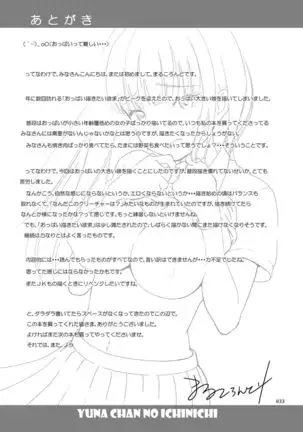 あとがき
(´-)。oO(おっぱいって難しい・・・)
ってなわけで、みなさんこんにちは、または初めまして、まるころんどです。
年に数回訪れる「おっぱい描きたい欲求」がピークを迎えたので、おっぱい大きい娘を描いてしまいました。
普段はおっぱい小さい年齢層低めの女の子ばっかり描いてるので、いつも私の本を買ってくださってる
みなさんには需要がないんじゃないかなとは思うのですが、描きたくなったからしょうがない。
みなさんも焼き肉ばっかり食べてたら、たまには野菜も食べたいって思うでしょ？・・・そういうことです。
ってなわけで、今回はおっぱい大きい娘を描くことにしたのですが、普段おっぱい描き慣れてないせいか、とても
苦労しました。
なんかこう、自然な感じにならないというか、エロくならないというか・・・描き始めの頃はバランスも
取れなくて「なんだこのクリーチャーは？」みたいなものが生まれていたのですが、描き続けてたら
なんとか様になったかな？って感じです。もっと練習しないといけませんね。
でも、「おっぱい描きたい欲求」は少し満たされたので、しばらく描かないでまた描けなくなりそうです。
継続は力なりとはよく言ったものです。
内容的には・・・読んでもらったものがすべてなので、言い訳はできませんが・・・力不足でしたね。
思ってた感じにはならなかったかもです。
また、JKもの描くときにリベンジしたいですね。
と、ダラダラ書いてたらスペースがなくなってきたのでこの辺で。
この本を買ってくれた皆さま、ありがとうございました。
よかったら次の本も買ってやってくださいませ。
それでは、また。ノシ
033
YUNA CHAN NO ICHINICHI